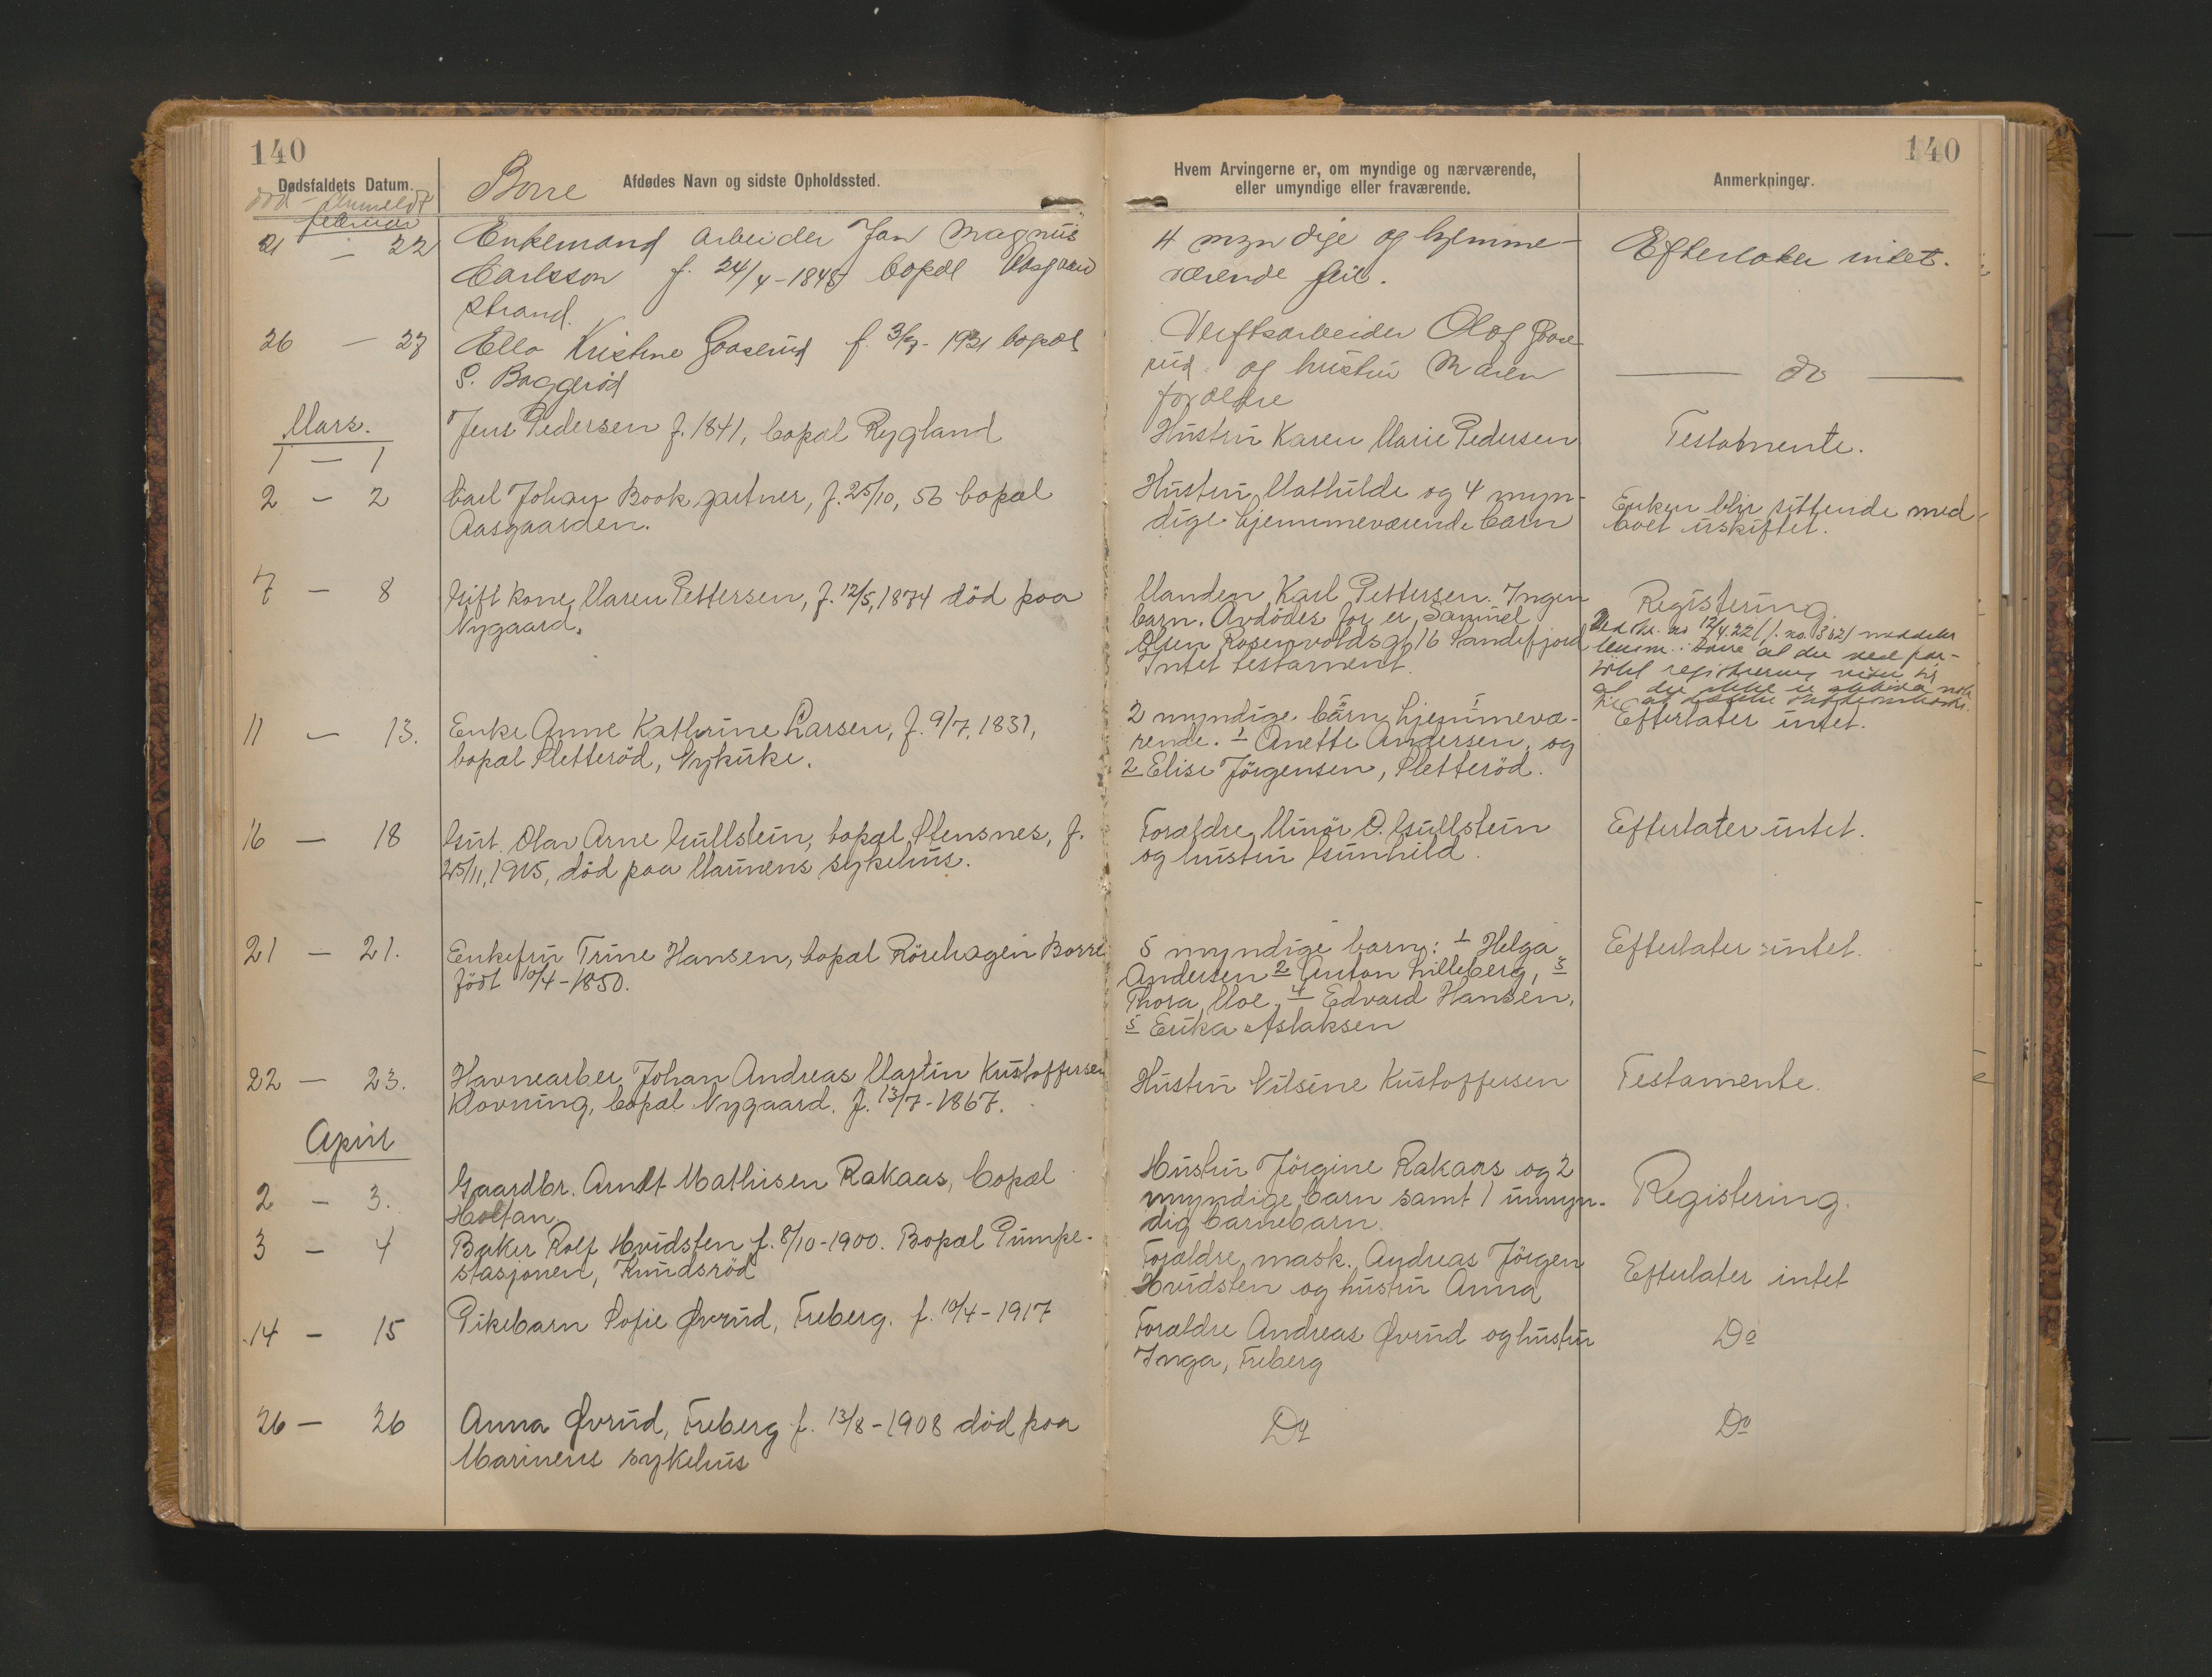 140
140
Dødsfaldets Datum.
Afdødes Navn og sidste Opholdssted.
Hvem Arvingerne er, om myndige og nærværende,
eller umyndige eller fraværende.
Anmerkninger.
død - Anmeldt
Borre
februar
21 - 22
Enkemand arbeider Jan Magnus
Carlsson f. 24/4-1845 bopæl Aasgaard
strand.
4 myndige og hjemme-
værende
Efterlater intet.
26 - 27
Ella Kristine Gaaserud f. 1921 bopæl
S. Baggerød
Verftsarbeider Olaf Gaase
rud og hustru Maren
forældre
do
Mars.
1 - 1
Jens Pedersen f. 1841, bopæl Rygland
Hustru Karen Marie Pedersen
Testamente.
2 - 2
Carl Johan Book gartner, f. 25/10, 56 bopæl
Aasgaarden.
Hustru Mathilde og 4 myn-
dige hjemmeværende barn
Enken blir sittende med
boet uskiftet.
7 - 8
Gift kone Maren Pettersen, f. 12/5, 1874 død paa
Nygaard.
Manden Karl Pettersen. Ingen
barn. Avdødes far er Samuel
Olsen Rosenvoldsgt 16 Sandefjord
Intet testament.
Registering.
Ved skr. av 12/4.22 j. no. 362/ meddeler
lensm. i Borre at der ved for-
søkt registrering viser sig
at der ikke er aktiva nok
11 - 13.
Enke Anne Kathrine Larsen, f. 9/7, 1831,
bopæl Sletteröd, Nykirke.
2 myndige barn hjemmevæ-
rende. 1 Anette Andersen, og
2 Elise Jörgensen, Sletteröd.
Efterlater intet.
16 - 18
Gut. Olav Arne Gullstein, bopæl Stensnes, f.
25/11, 1915, död paa Marinens sykehus.
Forældre Minör O. Gullstein
og hustru Gunhild.
Efterlater intet.
21 - 21.
Enkefru Trine Hansen, bopæl Rörehagen Borre
födt 10/4-1850.
5 myndige barn: 1 Helga
Andersen 2 Anton Lilleberg, 3
Thora Moe, 4 Edvard Hansen,
5 Erika Aslaksen
Efterlater intet.
22 - 23.
Havnearber Johan Andreas Martin Kristoffersen
Klovning, bopæl Nygaard. f. 13/7-1867.
Hustru Nilsine Kristoffersen
Testamente.
April
2 - 3.
Gaardbr. Arndt Mathisen Rakaas, bopæl
Holtan.
Hustru Jörgine Rakaas og 2
myndige barn samt 1 umyn-
dig barnebarn.
Registering.
3 - 4
Baker Rolf Hvidsten f. 8/10-1900. Bopæl Pumpe-
stasjonen, Knudsröd
Forældre mask. Andreas Jörgen
Hvidsten og hustru Anna
Efterlater intet
14 - 15
Pikebarn Sofie Øvrud, Freberg. f. 10/4-1917
Forældre Andreas Øvrud og hustru
Inga, Freberg
Do
26 - 26
Anna Øvrud, Freberg f. 13/8-1908 död paa
Marinens sykehus
Do
Do